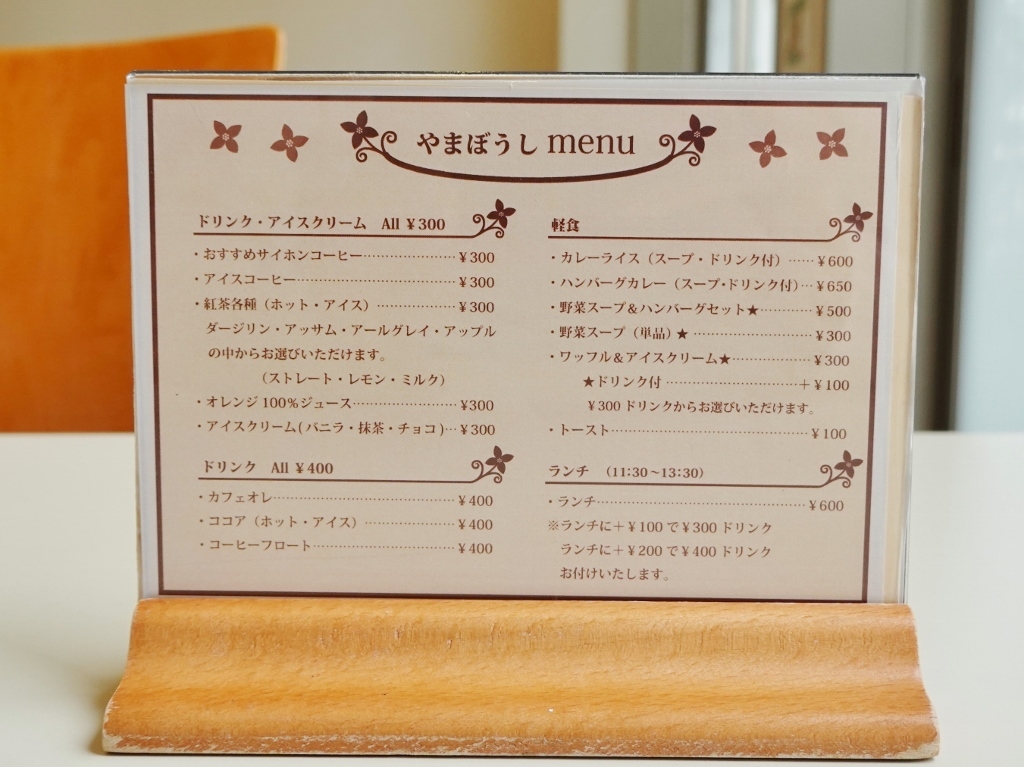 やまぼうし menu
ドリンク・アイスクリーム All ¥300
・おすすめサイホンコーヒー……………………¥300
・アイスコーヒー……………………¥300
・紅茶各種（ホット・アイス）……………………¥300
ダージリン・アッサム・アールグレイ・アップル
の中からお選びいただけます。
（ストレート・レモン・ミルク）
・オレンジ100％ジュース……………………¥300
・アイスクリーム(バニラ・抹茶・チョコ)…¥300
ドリンク All ¥400
・カフェオレ……………………¥400
・ココア（ホット・アイス）……………………¥400
・コーヒーフロート……………………¥400
軽食
・カレーライス（スープ・ドリンク付）……¥600
・ハンバーグカレー（スープ・ドリンク付）…¥650
・野菜スープ＆ハンバーグセット★…………¥500
・野菜スープ（単品）★……………………¥300
・ワッフル＆アイスクリーム★……………¥300
★ドリンク付……………………＋¥100
¥300ドリンクからお選びいただけます。
・トースト……………………¥100
ランチ （11:30～13:30）
・ランチ……………………¥600
※ランチに＋¥100で¥300ドリンク
ランチに＋¥200で¥400ドリンク
お付けいたします。